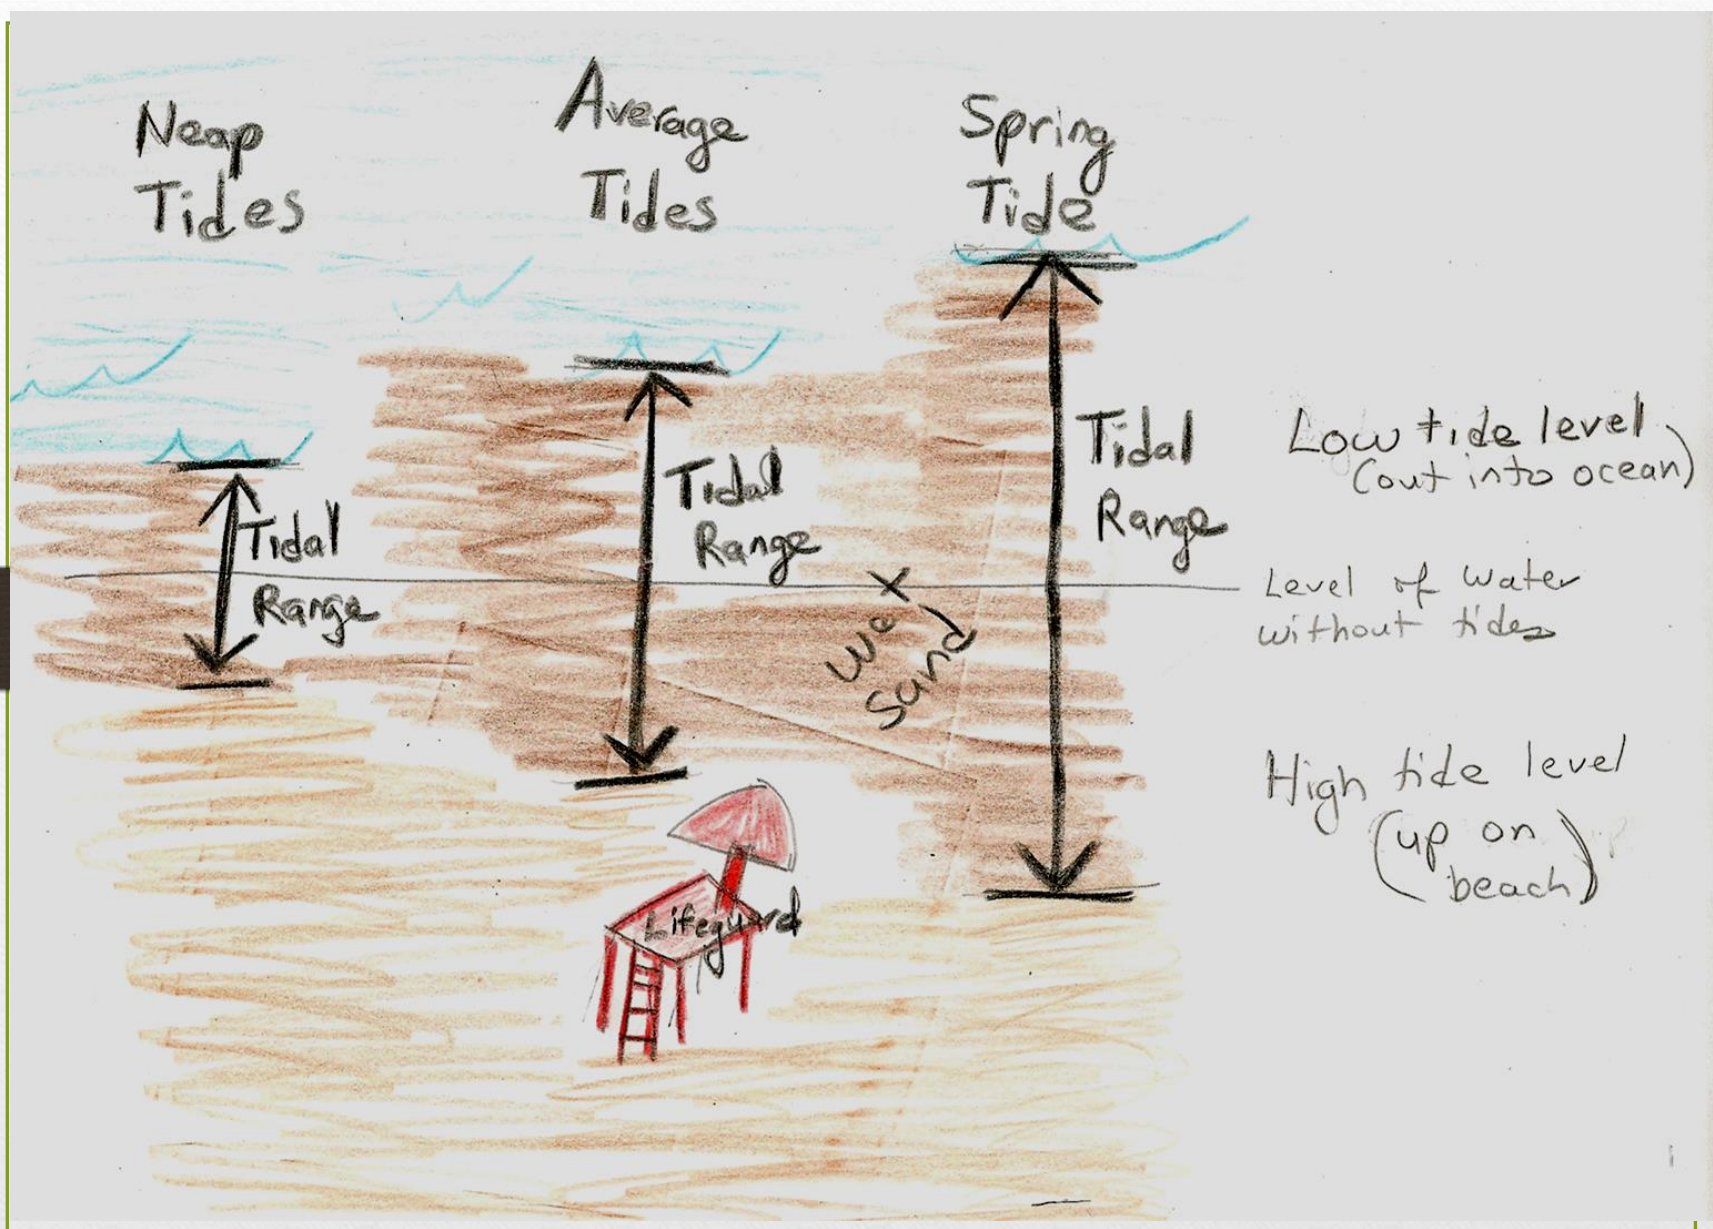 Neap
Tides
Average
Tides
Spring
Tide
Tidal
Range
Tidal
Range
Tidal
Range
Low tide level
(out into ocean)
Level of water
without tides
wet
sand
High tide level
(up on
beach)
Lifeguard